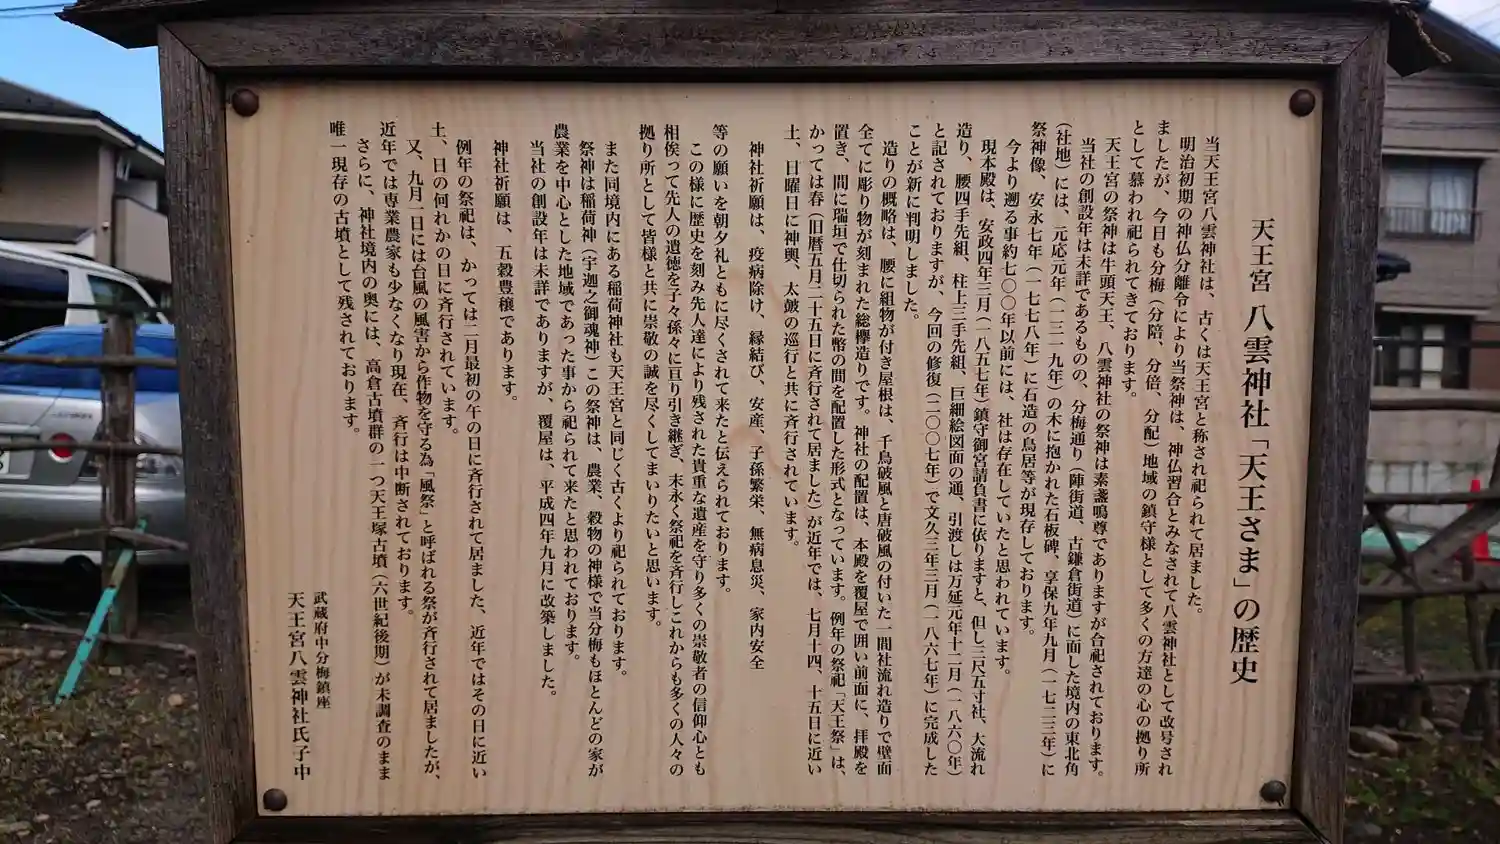 天王宮 八雲神社「天王さま」の歴史
当天王宮八雲神社は、古くは天王宮と称され祀られて居ました。
明治初期の神仏分離令により当祭神は、神仏習合とみなされて八雲神社として改号され
ましたが、今日も分梅（分陪、分倍、分配）地域の鎮守様として多くの方達の心の拠り所
として慕われ祀られてきております。
天王宮の祭神は牛頭天王、八雲神社の祭神は素盞鳴尊でありますが合祀されております。
当社の創設年は未詳であるものの、分梅通り（陣街道、古鎌倉街道）に面した境内の東北角
（社地）には、元応元年（一三一九年）の木に抱かれた石板碑、享保九年九月（一七二三年）に
祭神像、安永七年（一七七八年）に石造の鳥居等が現存しております。
今より遡る事約七〇〇年以前には、社は存在していたと思われています。
現本殿は、安政四年三月（一八五七年）鎮守御宮請負書に依りますと、但し三尺五寸社、大流れ
造り、腰四手先組、柱上三手先組、巨細絵図面の通、引渡しは万延元年十二月（一八六〇年）
と記されておりますが、今回の修復（二〇〇七年）で文久三年三月（一八六七年）に完成した
ことが新に判明しました。
造りの概略は、腰に組物が付き屋根は、千鳥破風と唐破風の付いた一間社流れ造りで壁面
全てに彫り物が刻まれた総欅造りです。神社の配置は、本殿を覆屋で囲い前面に、拝殿を
置き、間に瑞垣で仕切られた幣の間を配置した形式となっています。例年の祭祀「天王祭」は、
かっては春（旧暦五月二十五日に斉行されて居ました）が近年では、七月十四、十五日に近い
土、日曜日に神輿、太皷の巡行と共に斉行されています。
神社祈願は、疫病除け、縁結び、安産、子孫繁栄、無病息災、家内安全
等の願いを朝夕礼ともに尽くされて来たと伝えられております。
この様に歴史を刻み先人達により残された貴重な遺産を守り多くの崇敬者の信仰心とも
相俟って先人の遺徳を子々孫々に亘り引き継ぎ、末永く祭祀を斉行しこれからも多くの人々の
拠り所として皆様と共に崇敬の誠を尽くしてまいりたいと思います。
また同境内にある稲荷神社も天王宮と同じく古くより祀られております。
祭神は稲荷神（宇迦之御魂神）この祭神は、農業、穀物の神様で当分梅もほとんどの家が
農業を中心とした地域であった事から祀られて来たと思われております。
当社の創設年は未詳でありますが、覆屋は、平成四年九月に改築しました。
神社祈願は、五穀豊穣であります。
例年の祭祀は、かっては二月最初の午の日に斉行されて居ました、近年ではその日に近い
土、日の何れかの日に斉行されています。
又、九月一日には台風の風害から作物を守る為「風祭」と呼ばれる祭が斉行されて居ましたが、
近年では専業農家も少なくなり現在、斉行は中断されております。
さらに、神社境内の奥には、高倉古墳群の一つ天王塚古墳（六世紀後期）が未調査のまま
唯一現存の古墳として残されております。
武蔵府中分梅鎮座
天王宮八雲神社氏子中